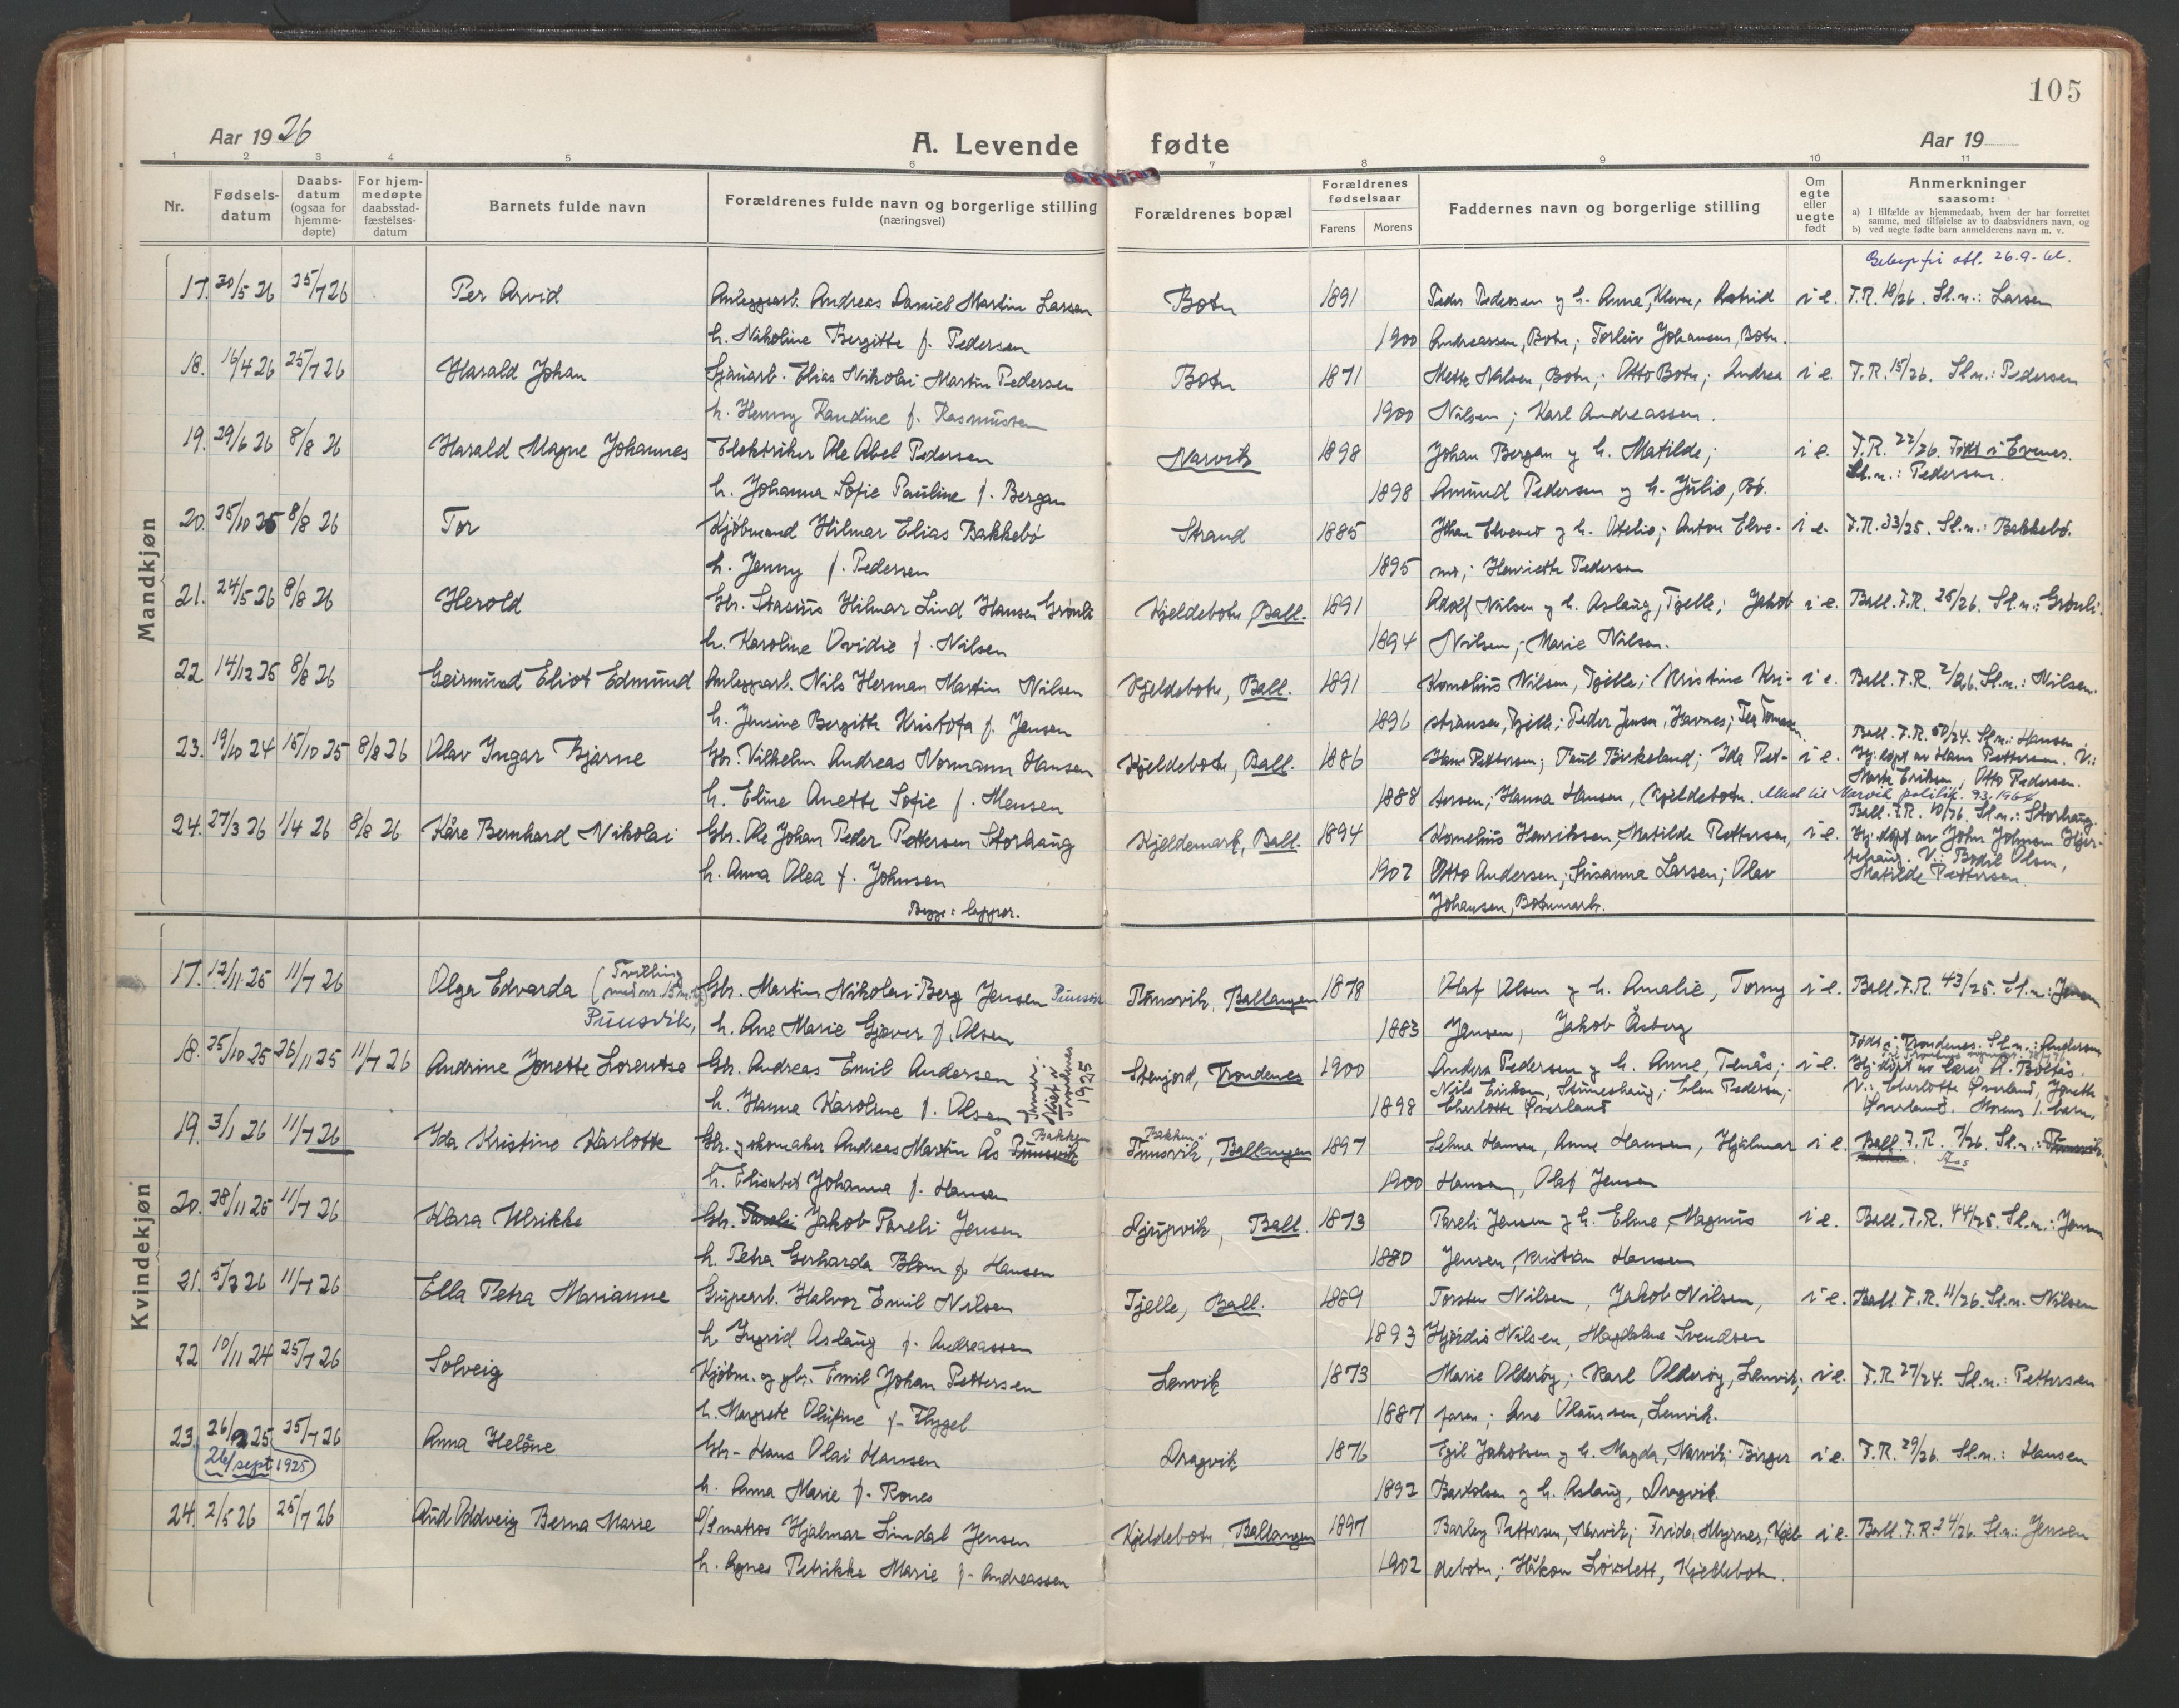 105
Aar 1926
A. Levende fødte
Aar 19
1 2 3 4 5 6 7 8 9 10 11
Nr.
Fødselsdatum
Daabsdatum (ogsaa for hjemmedøpte)
For hjemmedøpte daabsstadfæstelsesdatum
Barnets fulde navn
Forældrenes fulde navn og borgerlige stilling (næringsvei)
Forældrenes bopæl
Forældrenes fødselsaar
Farens Morens
Faddernes navn og borgerlige stilling
Om egte eller uegte født
Anmerkninger saasom:
a) I tilfælde av hjemmedaab, hvem der har forrettet samme, med tilføielse av to daabsvidners navn, og
b) ved uegte fødte barn anmelderens navn m. v.
Mandkjøn
26.9-61.
17. 30/5 26 25/7 26 Per Arvid Anleggsarb. Andreas Daniel Martin Larsen Botn 1891 Peder Pedersen og h. Anna, Astrid i e. F.R. 18/26. Sl.n.: Larsen
h. Nikoline Bergitte f. Pedersen 1900 Andreassen, Botn; Torleiv Johansen, Botn.
18. 16/4 26 25/7 26 Harald Johan Sjauarb. Elias Nikolai Martin Pedersen Botn 1871 Mette Nilsen, Botn; Otto Botn; Andrea i e. F.R. 15/26. Sl.n.: Pedersen
h. Henny Randine f. Rasmussen 1900 Nilsen; Karl Andreassen.
19. 29/6 26 8/8 26 Harald Magne Johannes Elektriker Ole Abel Pedersen Narvik 1898 Johan Bergan og h. Matilde; i e. F.R. 22/26. Født i Evenes.
Sl.n.: Pedersen.
h. Johanna Sofie Pauline f. Bergan 1898 Amund Pedersen og h. Julie, Bø.
20. 25/10 25 8/8 26 Tor Kjøbmand Hilmar Elias Bakkebø Strand 1885 Johan Elvenes og h. Otelie; Anton Elve- i e. F.R. 33/25. Sl.n.: Bakkebø.
h. Jenny f. Pedersen 1895 nes; Henriette Pedersen
21. 24/5 26 8/8 26 Herold Gbr. Stasius Hilmar Lind Hansen Grønli Kjeldebotn, Ball. 1891 Adolf Nilsen og h. Aslaug, Tjelle; Jakob i e. Ball. F.R. 25/26. Sl.n.: Grønli.
h. Karoline Ovidie f. Nilsen 1894 Nilsen; Marie Nilsen.
22. 14/12 25 8/8 26 Geirmund Eliot Edmund Anleggsarb. Nils Herman Martin Nilsen Kjeldebotn, Ball. 1891 Kornelius Nilsen, Tjelle; Kristine Kri- i e. Ball. F.R. 2/26. Sl.n.: Nilsen.
h. Jensine Bergitte Kristofa f. Jensen 1896 stiansen, Tjelle; Peder Jensen, Havnes;
23. 19/10 24 15/10 25 8/8 26 Olav Ingar Bjarne Gbr. Vilhelm Andreas Normann Hansen Kjeldebotn, Ball. 1886 Hans Pettersen; Paul Birkeland; Ida Pet- i e. Ball. F.R. 50/24. Sl.n.: Hansen.
Hj.døpt av Hans Pettersen. V.:
Marta Eriksen, Otto Pedersen.
h. Eline Anette Sofie f. Mensen 1888 tersen; Hanna Hansen, Kjeldebotn.
Narvik politik. 9/3.1964
24. 27/3 26 1/4 26 8/8 26 Kåre Bernhard Nikolai Gbr. Ole Johan Peder Pettersen Storhaug Kjeldemark, Ball. 1894 Kornelius Henriksen, Matilde Pettersen, i e. Ball. F.R. 10/26. Sl.n.: Storhaug.
Hj.døpt av John Johnsen
V.: Bodil Olsen,
Matilde Pettersen.
h. Anna Olea f. Johnsen 1902 Otto Andersen; Susanna Larsen; Olav
Begge: lapper. Johansen, Botnmark.
Kvindekjøn
17. 12/11 25 11/7 26 Olga Edvarda (Tvilling med nr. 15 Gbr. Martin Nikolai Berg Jensen Puusvik Punsvik, Ballangen 1878 Olaf Olsen og h. Amalie, Tomy i e. Ball. F.R. 43/25. Sl.n.: Jensen
Puusvik, h. Ane Marie Gjæver f. Olsen 1883 Jensen, Jakob Åsberg
18. 25/10 25 26/11 25 11/7 26 Andrine Jonette Lorentse Gbr. Andreas Emil Andersen Stenjord, Trondenes 1900 Anders Pedersen og h. Anne, Tenås; i e. Født i Trondenes. Sl.n.: Andersen
Hj.døpt av lærer A. Boltås.
V.: Charlotte Øverland, Jonette
Øverland. Morens 1. barn.
Viet i Trondenes 1925
h. Hanna Karoline f. Olsen 1898 Nils Eriksen, Steneshaug; Elen Pedersen;
Charlotte Øverland
19. 3/1 26 11/7 26 Ida Kristine Karlotte Gbr. og skomaker Andreas Martin Ås Punsvik Bakken Bakken i Punsvik, Ballangen 1897 Selma Hansen, Anne Hansen, Hjalmar i e. Ball. F.R. 7/26. Sl.n.: Punsvik. Aas
h. Elisabet Johanna f. Hansen 1900 Hansen, Olaf Jensen
20. 28/11 25 11/7 26 Klara Ulrikke Gbr. Pareli Jakob Pareli Jensen Djupvik, Ball. 1873 Pareli Jensen og h. Eline, Magnus i e. Ball. F.R. 44/25. Sl.n.: Jensen
h. Petra Gerharda Blom f. Hansen 1880 Jensen, Kristian Hansen
21. 5/2 26 11/7 26 Ella Petra Marianne Grupearb. Halvor Emil Nilsen Tjelle, Ball. 1889 Torsten Nilsen, Jakob Nilsen, i e. Ball. F.R. 11/26. Sl.n. Nilsen
h. Ingrid Aslaug f. Andreassen 1893 Hjørdis Nilsen, Magdalena Svendsen
22. 10/11 24 25/7 26 Solveig Kjøbm. og gbr. Emil Johan Pettersen Lenvik 1873 Marie Olderøy; Karl Olderøy, Lenvik; i e. F.R. 27/24. Sl.n.: Pettersen
h. Margrete Olufine f. Flygel 1887 faren; Ane Olaussen, Lenvik.
23. 26/9 25 25/7 26 Anna Helene Gbr. Hans Olai Hansen Dragvik 1876 Egil Jakobsen og h. Magda, Narvik; Birger i e. F.R. 29/26. Sl.n.: Hansen
26/sept 1925
h. Anna Marie f. Rones 1892 Bartolsen og h. Aslaug, Dragvik.
24. 2/5 26 25/7 26 Aud Oddveig Berna Marie matros Hjalmar Lindal Jensen Kjeldebotn, Ballangen 1897 Barley Pettersen, Narvik; Frida Myrnes, Kjel- i e. Ball. F.R. 24/26. Sl.n.: Jensen
h. Agnes Petrikke Marie f. Andreassen 1902 debotn; Håkon Løvslett, Kjeldebotn.